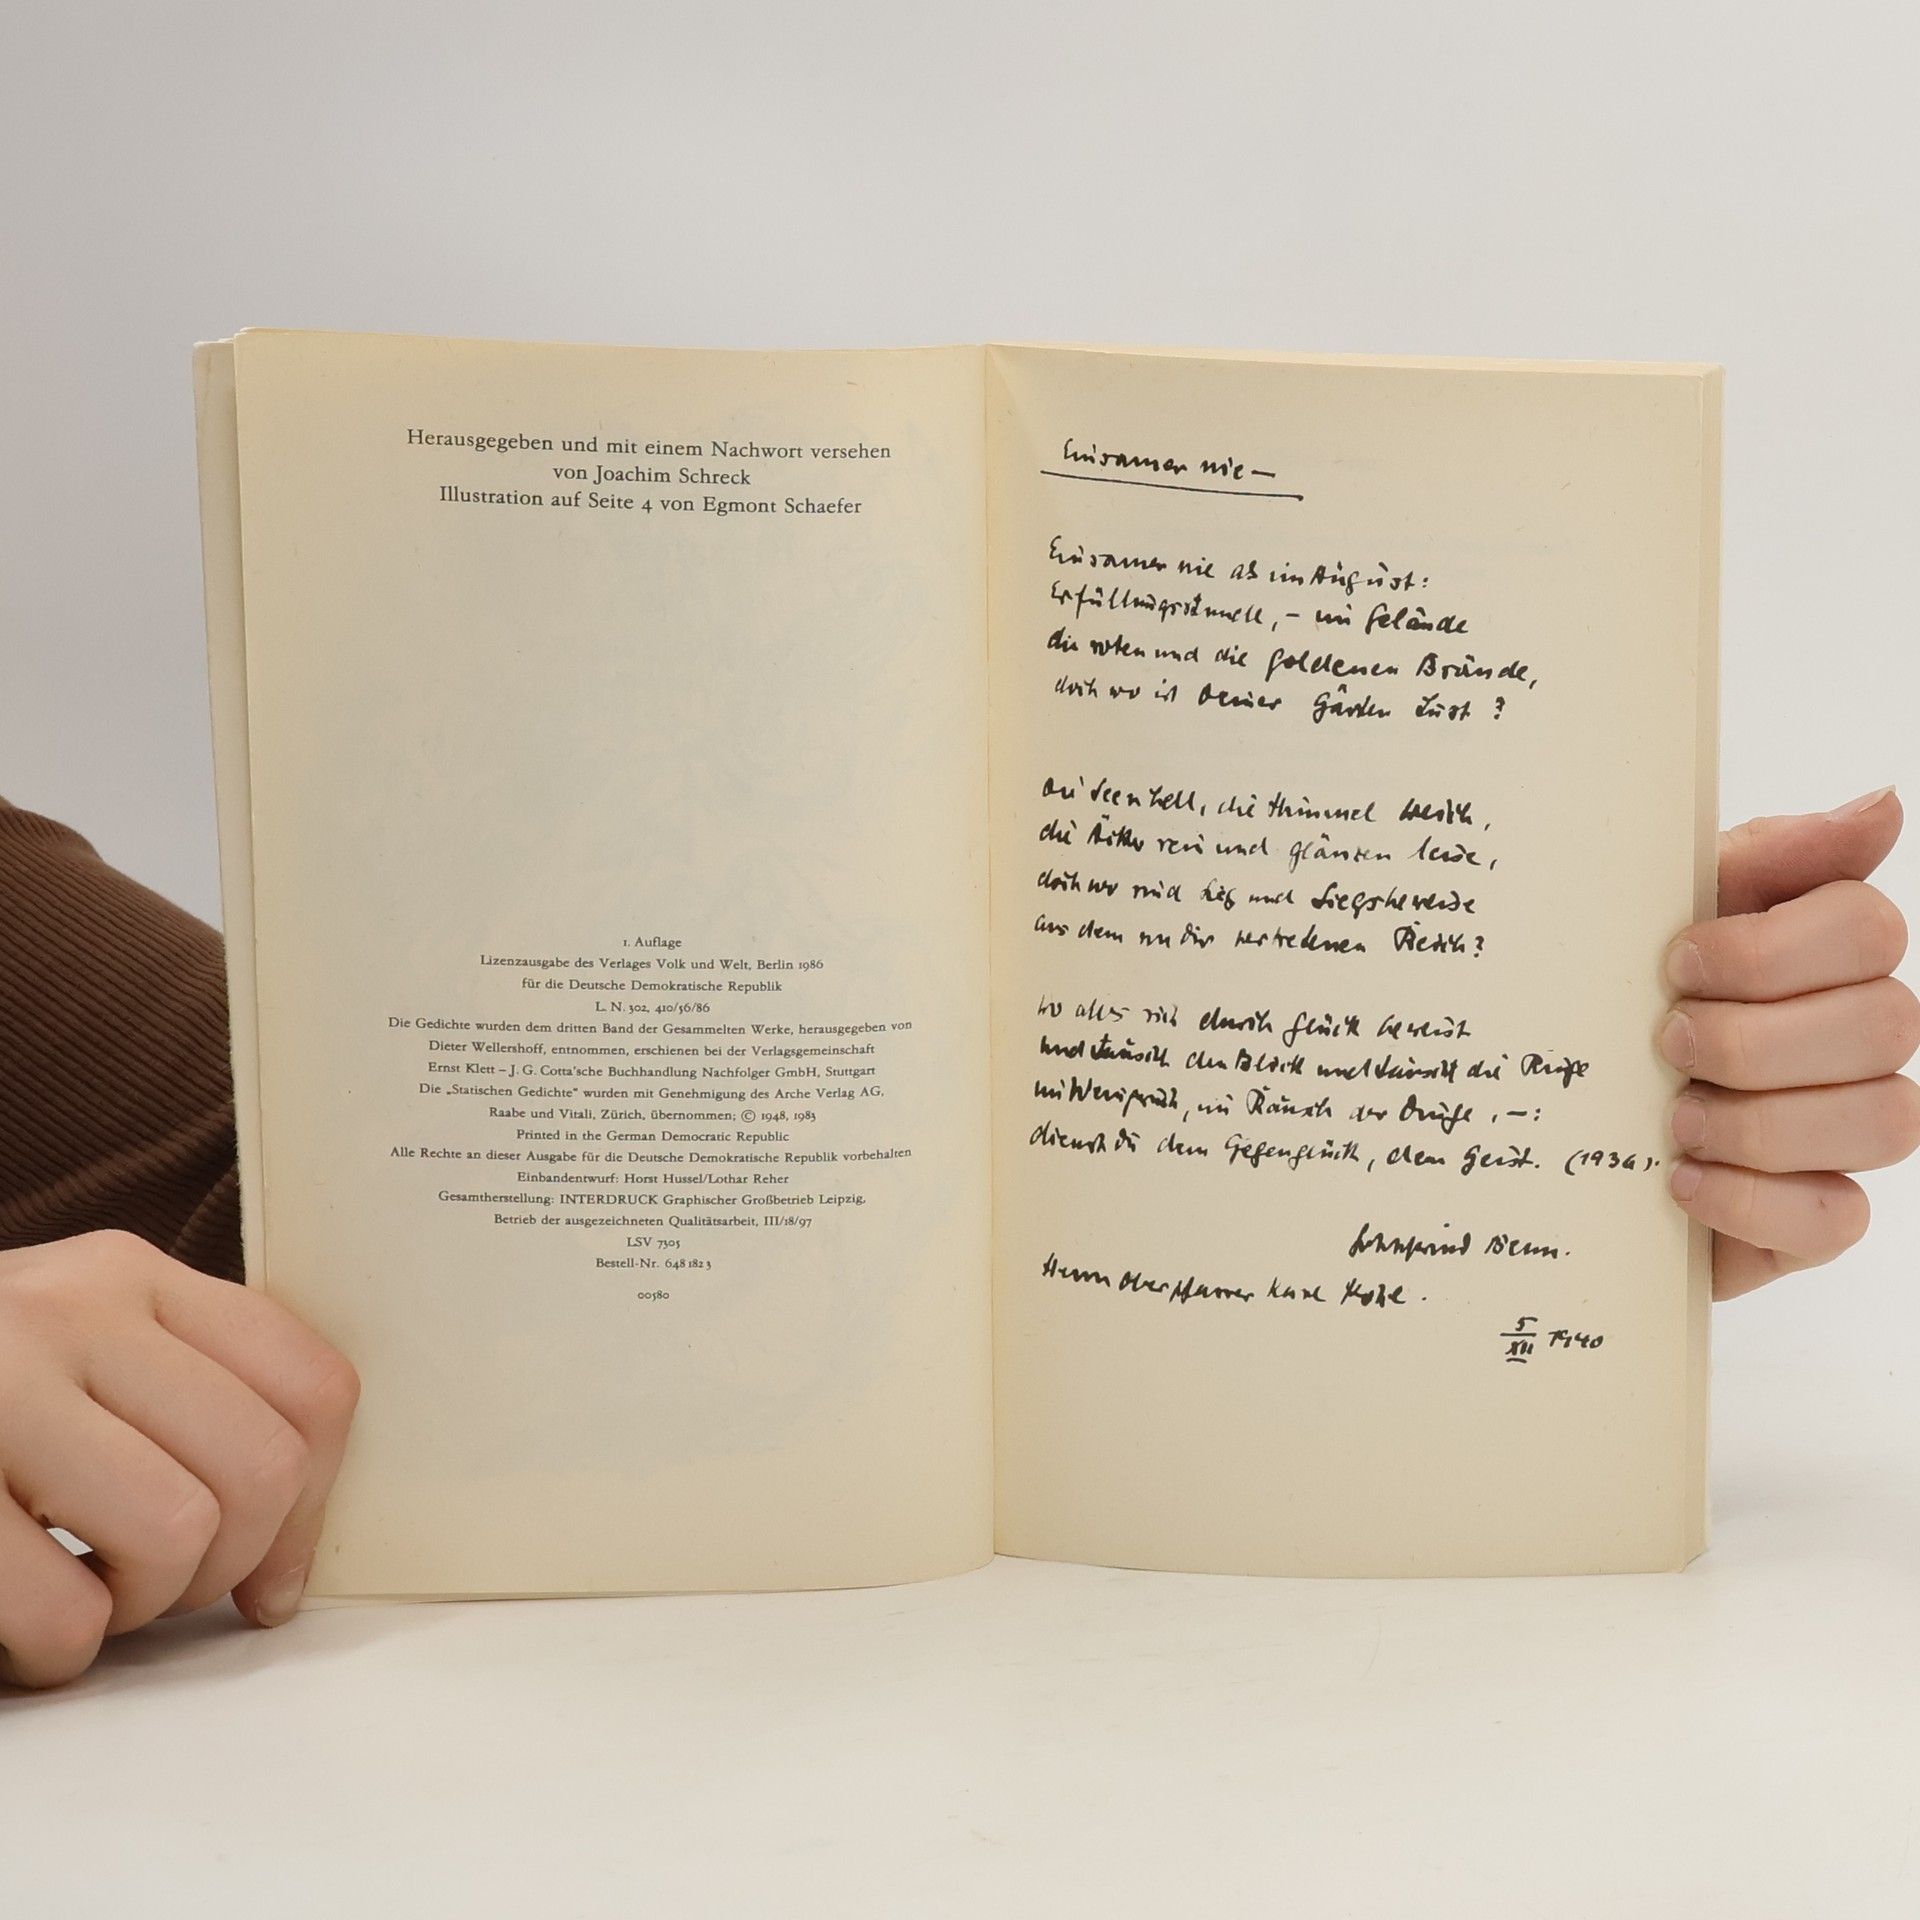 Herausgegeben und mit einem Nachwort versehen
von Joachim Schreck
Illustration auf Seite 4 von Egmont Schaefer
1. Auflage
Lizenzausgabe des Verlages Volk und Welt, Berlin 1986
für die Deutsche Demokratische Republik
L. N. 302, 410/56/86
Die Gedichte wurden dem dritten Band der Gesammelten Werke, herausgegeben von
Dieter Wellershoff, entnommen, erschienen bei der Verlagsgemeinschaft
Ernst Klett – J. G. Cotta'sche Buchhandlung Nachfolger GmbH, Stuttgart
Die „Statischen Gedichte“ wurden mit Genehmigung des Arche Verlag AG,
Raabe und Vitali, Zürich, übernommen; © 1948, 1983
Printed in the German Democratic Republic
Alle Rechte an dieser Ausgabe für die Deutsche Demokratische Republik vorbehalten
Einbandentwurf: Horst Hussel/Lothar Reher
Gesamtherstellung: INTERDRUCK Graphischer Großbetrieb Leipzig,
Betrieb der ausgezeichneten Qualitätsarbeit, III/18/97
LSV 7305
Bestell-Nr. 648 182 3
00580
Einsamer nie —
Einsamer nie als im August:
Erfüllungsstunde, – im Gelände
die roten und die goldenen Brände,
doch wo ist deiner Gärten Lust?
Die Seen hell, die Himmel weich,
die Äcker rein und glänzen leise,
doch wo sind Sieg und Siegsbeweise
aus dem von dir vertretenen Reich?
Wo alles sich durch Glück beweist
und tauscht den Blick und tauscht die Ringe
im Weingeruch, im Rausch der Dinge, –:
dienst du dem Gegenglück, dem Geist. (1936).
Gottfried Benn.
Herrn Oberpfarrer Karl
5/XII 1940